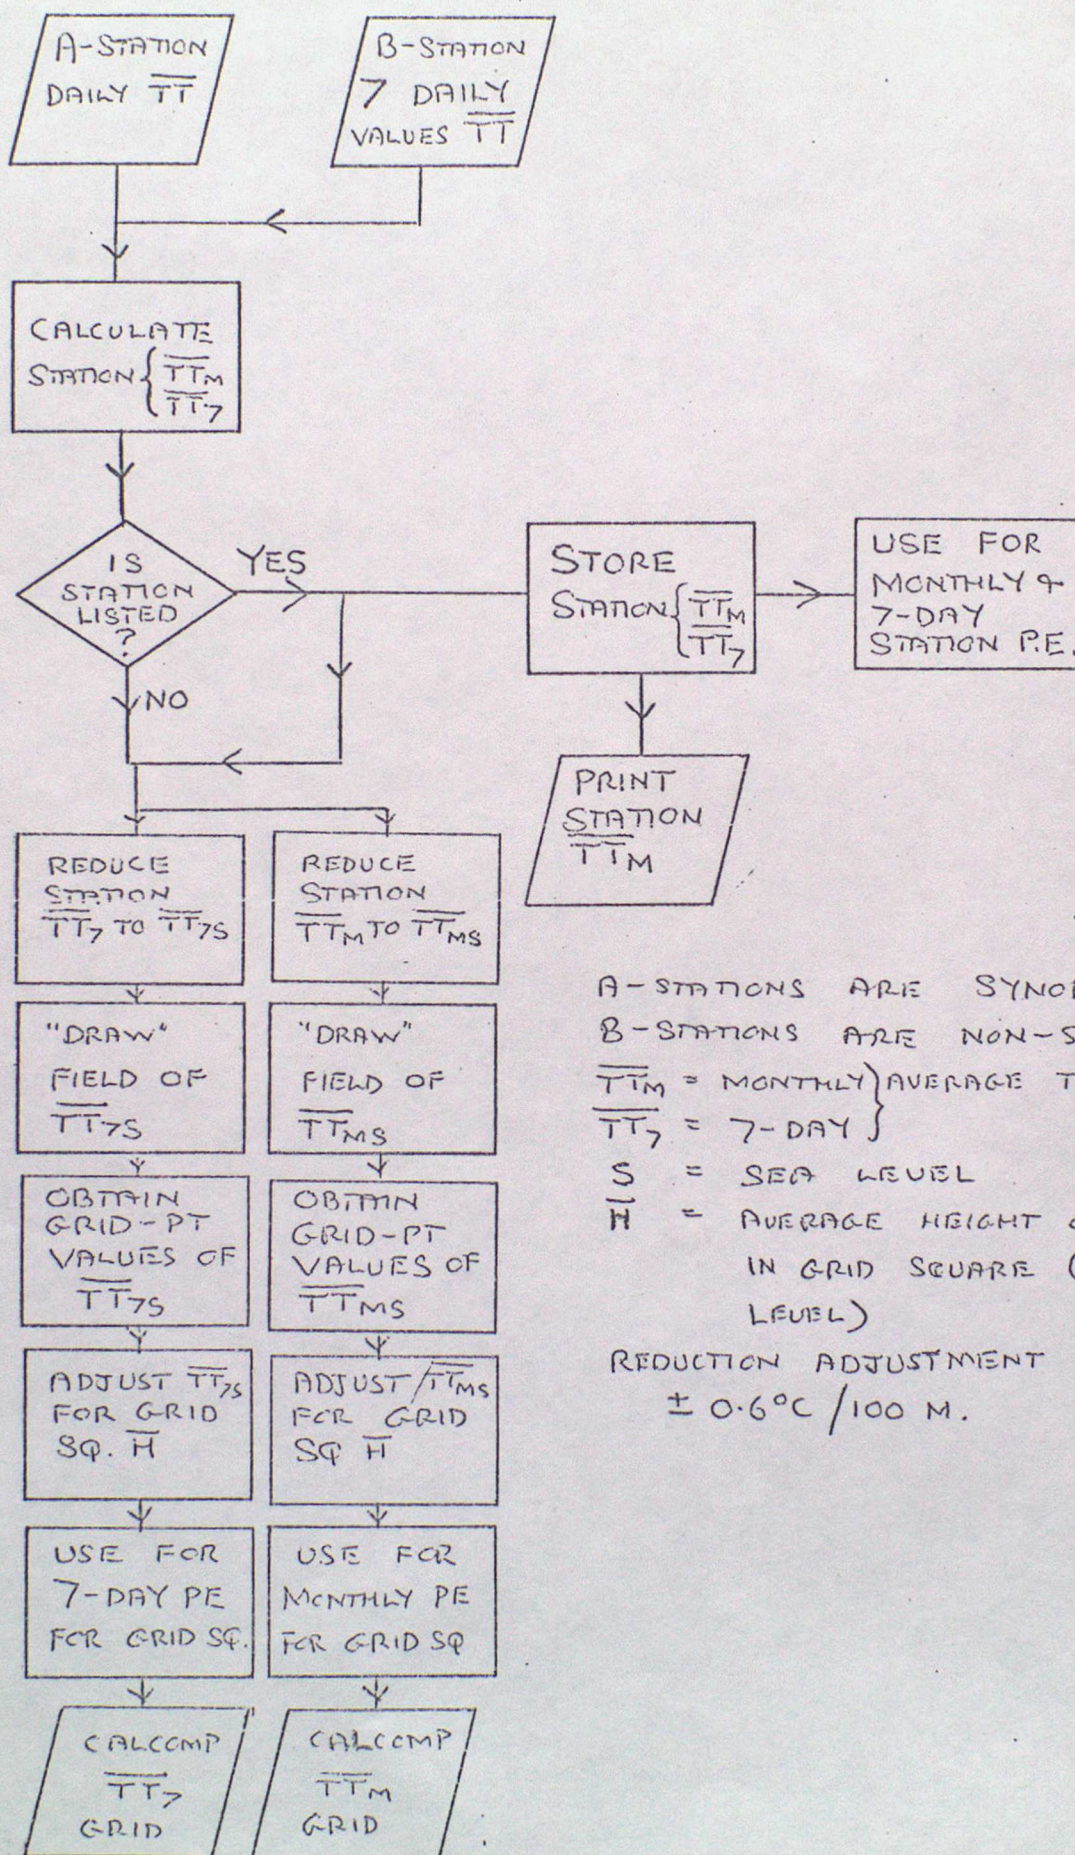 A-STATION
DAILY T̅T̅
B-STATION
7 DAILY
VALUES T̅T̅
CALCULATE
STATION { T̅T̅M
T̅T̅7
IS
STATION
LISTED
?
YES
NO
STORE
STATION { T̅T̅M
T̅T̅7
USE FOR
MONTHLY &
7-DAY
STATION P.E.
PRINT
STATION
T̅T̅M
REDUCE
STATION
T̅T̅7 TO T̅T̅7S
REDUCE
STATION
T̅T̅M TO T̅T̅MS
"DRAW"
FIELD OF
T̅T̅7S
"DRAW"
FIELD OF
T̅T̅MS
OBTAIN
GRID-PT
VALUES OF
T̅T̅7S
OBTAIN
GRID-PT
VALUES OF
T̅T̅MS
ADJUST T̅T̅7S
FOR GRID
SQ. H̅
ADJUST T̅T̅MS
FOR GRID
SQ H̅
USE FOR
7-DAY PE
FOR GRID SQ.
USE FOR
MONTHLY PE
FOR GRID SQ
CALCOMP
T̅T̅7
GRID
CALCOMP
T̅T̅M
GRID
A-STATIONS ARE
B-STATIONS ARE NON-S
T̅T̅M = MONTHLY } AVERAGE T
T̅T̅7 = 7-DAY }
S = SEA LEVEL
H̅ = AVERAGE HEIGHT
IN GRID SQUARE (
LEVEL)
REDUCTION ADJUSTMENT
± 0.6°C /100 M.